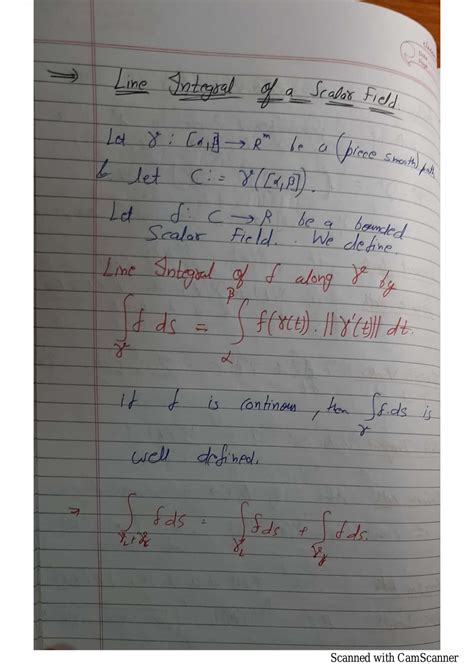 ⇒ Line Integral of a Scalar Field
Let γ : [α,β] → Rᵐ be a (piece smooth) path
& let C := γ([α,β]).
Let f : C → R be a bounded
Scalar Field. We define.
Line Integral of f along γ by
∫_γ f ds = ∫_α^β f(γ(t)). ||γ'(t)|| dt.
if f is continous, then ∫_γ f.ds is
well defined.
⇒ ∫ f ds = ∫ f ds + ∫ f ds.
Scanned with CamScanner